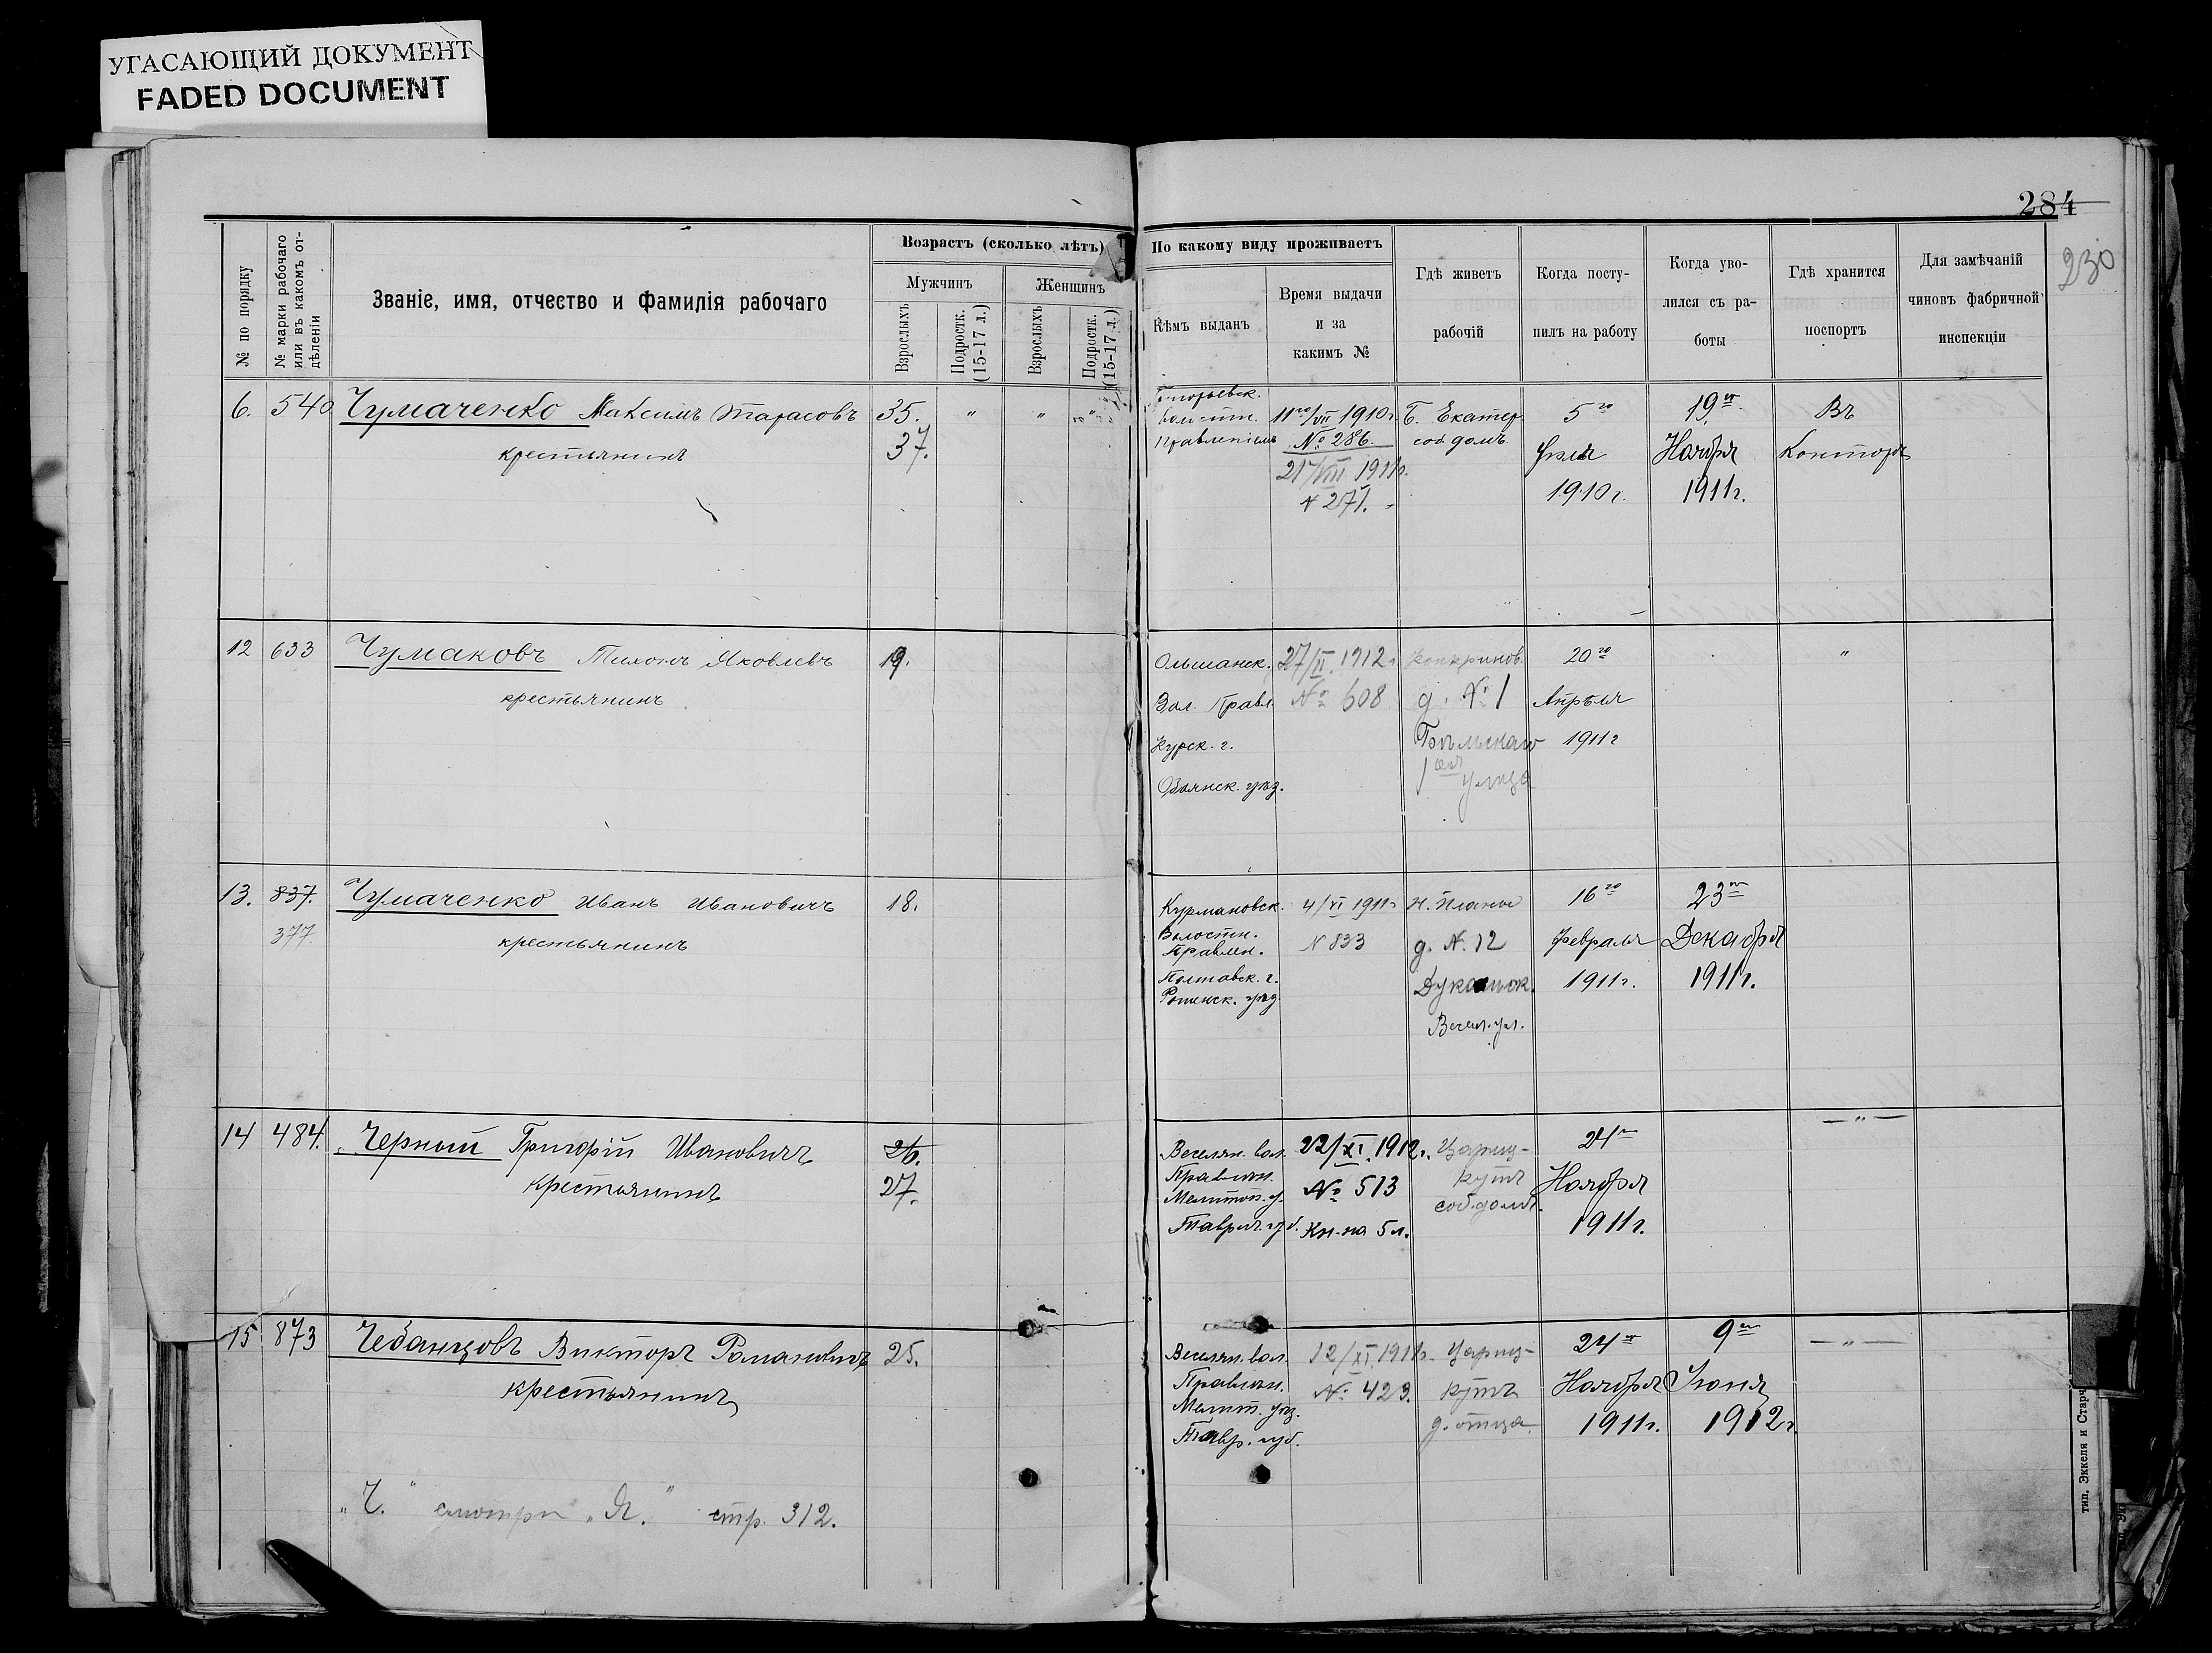 УГАСАЮЩИЙ ДОКУМЕНТ
FADED DOCUMENT
284
230
№ по порядку
№ марки рабочаго
или въ какомъ от-
дѣленіи
Званіе, имя, отчество и фамилія рабочаго
Возрастъ (сколько лѣтъ)
Мужчинъ
Женщинъ
Взрослыхъ
Подростк.
(15-17 л.)
Взрослыхъ
Подростк.
(15-17 л.)
По какому виду проживаетъ
Кѣмъ выданъ
Время выдачи
и за
какимъ №
Гдѣ живетъ
рабочій
Когда посту-
пилъ на работу
Когда уво-
лился съ ра-
боты
Гдѣ хранится
поспортъ
Для замѣчаній
чиновъ фабричной
инспекціи
6. 540. Чумаченко Максимъ Тарасовъ 35. " " "
крестьянинъ 37.
Волостн.
Правленіемъ
11го/VII 1910г.
№ 286.
21/VIII 1911г.
№ 271.
Б. Екатер.
соб. домъ.
5го
Іюля
1910г.
19го
Ноября
1911г.
Въ
Конторѣ
12 633 Чумаковъ Яковлевъ 19.
крестьянинъ
Ольшанск.
Вол. Правл.
Курск. г.
27/II. 1912г.
№ 608.
д. № 1
1ая улица
20го
Апрѣля
1911г
"
13. 837. Чумаченко Иванъ Ивановичъ 18.
377.
крестьянинъ
Курмановск.
Волостн.
Правлен.
Полтавск. г.
Роменск. уѣзд.
4/VI 1911г
№ 833
Н. Планы
д. №. 12
16го
Февраля
1911г.
23го
Декабря
1911г.
14 484. Черный Григорій Ивановичъ 26.
крестьянинъ 27.
Веселян. вол.
Правлен.
Мелитоп. у.
Таврич. губ.
22/XI. 1912г.
№ 513
Кн. на 5 л.
Цариц-
кутъ
соб. домъ.
24го
Ноября
1911г.
— " —
15 873 Чебанцовъ Викторъ Романовичъ 25.
крестьянинъ
Веселян. вол.
Правлен.
Мелит. уѣз.
Тавр. губ.
12/XI. 1911г.
№ 423.
Цариц-
кутъ
д. отца.
24го
Ноября
1911г.
9го
Іюня
1912г.
— " —
„Ч." смотри „Я." стр. 312.
тип. Эккеля и Старч